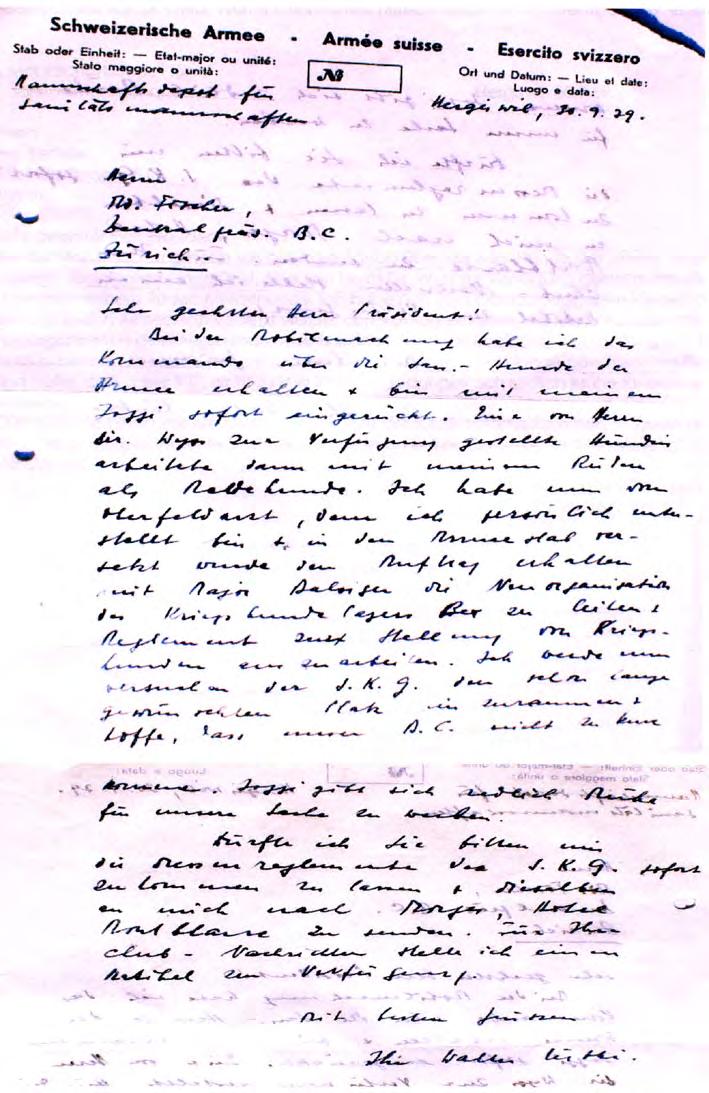 Schweizerische Armee - Armée suisse - Esercito svizzero
Stab oder Einheit: — Etat-major ou unité:
Stato maggiore o unità:
Nº
Ort und Datum: — Lieu et date:
Luogo e data:
Mannschaftsdepot für
Sanitätsmannschaften
Hergiswil, 30.9.39.
Herrn
Fischer,
Zentralpräs. B.C.
Zürich.
Sehr geehrter Herr Präsident!
Bei der Mobilmachung habe ich das
Kommando über die San.-Hunde der
Armee erhalten + bin mit meinem
Jossi sofort eingerückt. Eine von Herrn
Dir. Wyss zur Verfügung gestellte Hündin
arbeitete dann mit meinem Rüden
als Meldehunde. Ich habe nun vom
Oberfeldarzt, dem ich persönlich unter-
stellt bin + in den Armeestab ver-
setzt wurde den Auftrag erhalten
mit Major Balsiger die Neuorganisation
des Kriegshundelagers Bex zu leiten +
Reglement zur Stellung von Kriegs-
hunden auszuarbeiten. Ich werde nun
versuchen der S.K.G. den schon lange
gewünschten Platz einzuräumen +
hoffe, dass unser B.C. nicht zu kurz
komme. Jossi gibt sich redlich Mühe
für unsere Sache zu werben.
Dürfte ich Sie bitten mir
die Dressurreglemente der S.K.G. sofort
zukommen zu lassen + dieselben
an mich nach Morges, Hotel
Montblanc zu senden. Für Ihre
Club-Nachrichten stelle ich einen
Artikel zur Verfügung.
Mit besten Grüssen
Ihr Walter